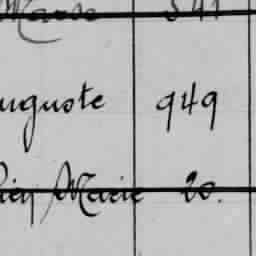 Marie 541
uguste 949
Marie 20.